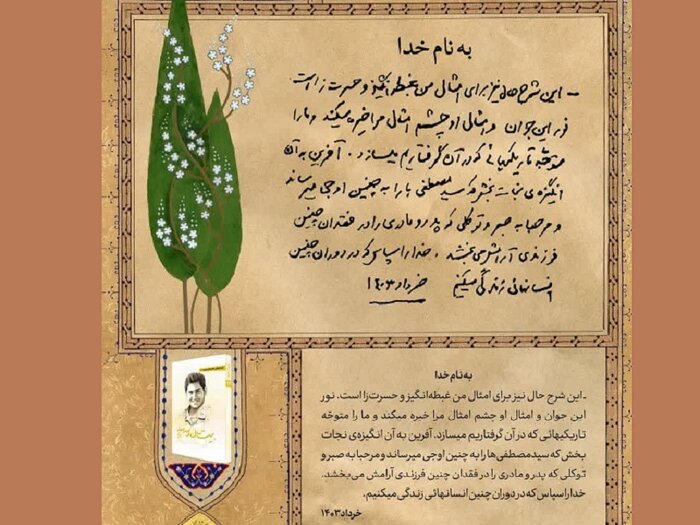 به نام خدا
- این شرح حال نیز برای امثال من غبطه‌انگیز و حسرت‌زا است
نور این جوان و امثال او چشم امثال مرا خیره میکند و ما را
متوجّه تاریکیهائی که در آن گرفتاریم میسازد. آفرین به آن
انگیزه‌ی نجات بخش که سید مصطفی‌ها را به چنین اوجی میرساند
و مرحبا به صبر و توکلی که پدر و مادری را در فقدان چنین
فرزندی آرامش می‌بخشد. خدا را سپاس که در دوران چنین
انسانهائی زندگی میکنیم
خرداد ۱۴۰۳
به نام خدا
ـ این شرح حال نیز برای امثال من غبطه‌انگیز و حسرت‌زا است. نور
این جوان و امثال او چشم امثال مرا خیره میکند و ما را متوجّه
تاریکیهائی که در آن گرفتاریم میسازد. آفرین به آن انگیزه‌ی نجات
بخش که سیدمصطفی‌ها را به چنین اوجی میرساند و مرحبا به صبر و
توکلی که پدر و مادری را در فقدان چنین فرزندی آرامش می‌بخشد.
خدا را سپاس که در دوران چنین انسانهائی زندگی میکنیم.
خرداد ۱۴۰۳